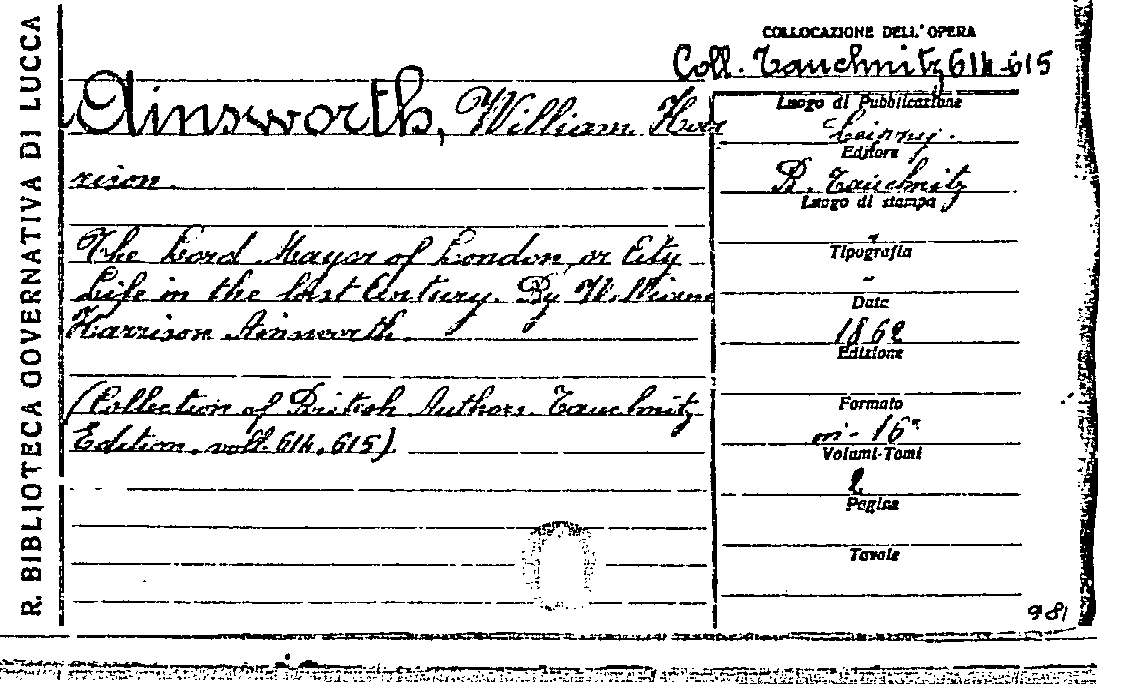 R. BIBLIOTECA GOVERNATIVA DI LUCCA
COLLOCAZIONE DELL' OPERA
Coll. Tauchnitz 614-615
Ainsworth, William Har
rison.
The Lord Mayor of London, or City
Life in the last Century. By William
Harrison Ainsworth.
(Collection of British Authors. Tauchnitz
Edition, voll. 614, 615).
Luogo di Pubblicazione
Leipzig.
Editore
B. Tauchnitz
Luogo di stampa
"
Tipografia
"
Data
1862
Edizione
Formato
in-16°
Volumi-Tomi
2
Pagine
Tavole
981